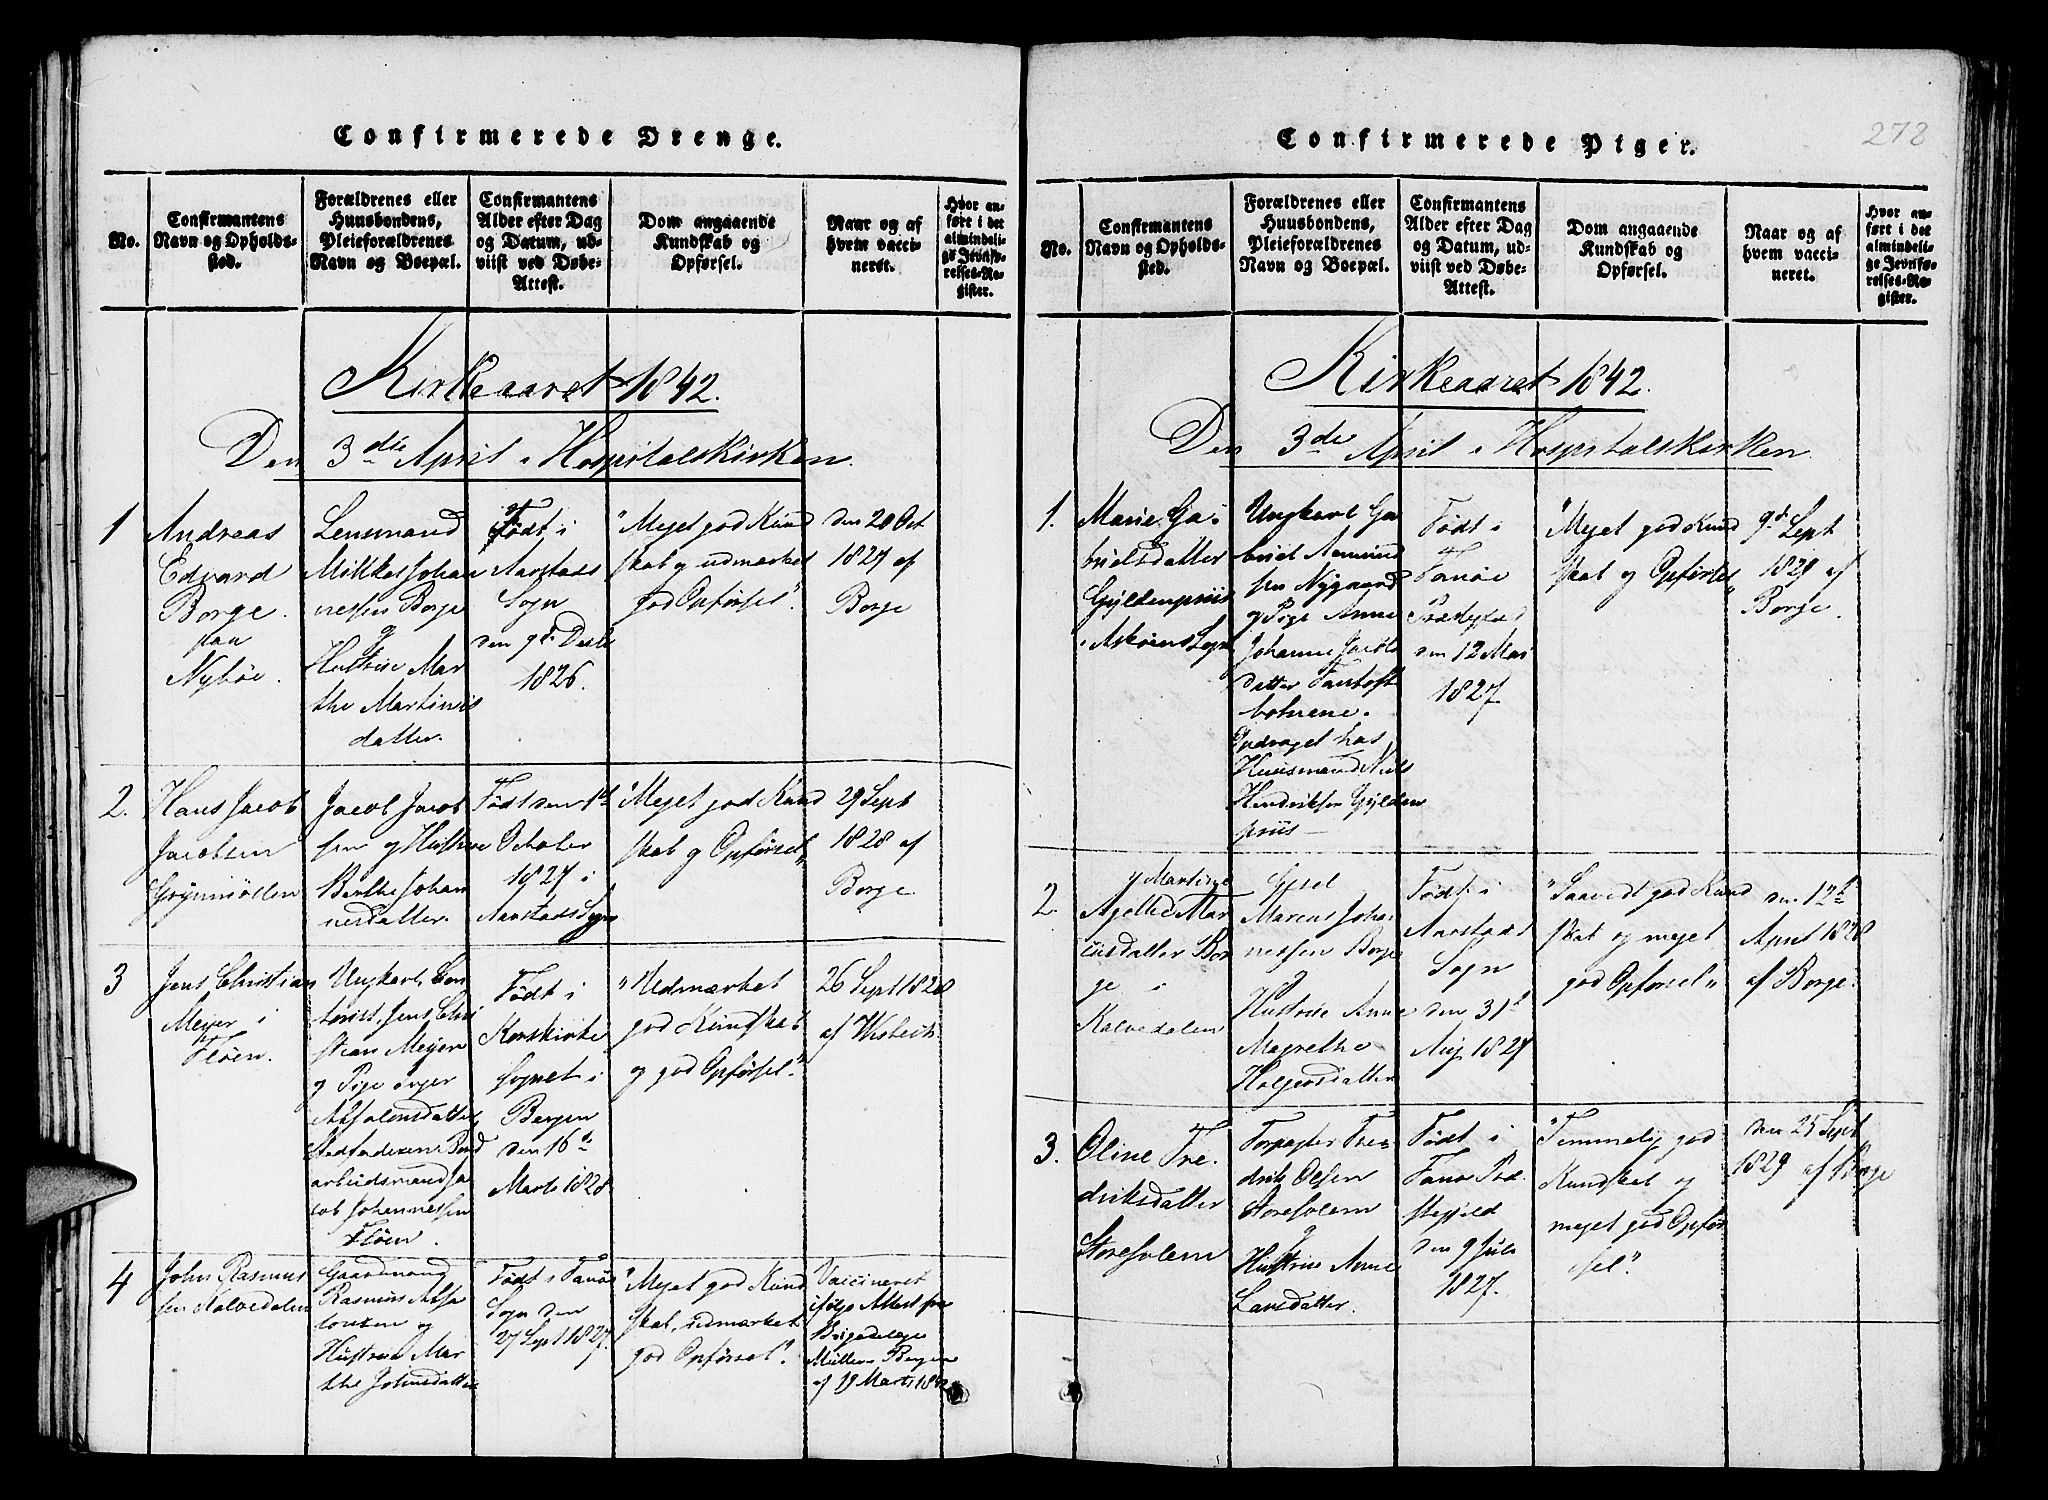 Confirmerede Drenge.
No.
Confirmantens
Navn og Opholds-
sted.
Forældrenes eller
Huusbondens,
Pleieforældrenes
Navn og Boepæl.
Confirmantens
Alder efter Dag
og Datum, ud-
viist ved Døbe-
Attest.
Dom angaaende
Kundskab og
Opførsel.
Naar og af
hvem vacci-
neret.
Hvor an-
ført i det
almindeli-
ge Jevnfø-
relses-Re-
gister.
Kirkeaaret 1842.
Den 3die April i Hospitalskirken.
1
Andreas
Edvard
Borge
paa
Nybøe.
Lensmand
Mikkel Johan
nessen Borge
og
Hustrue Mar
the Martinis
datter.
Født i
Aarstads
Sogn
den 9de Decbr
1826.
"Meget god Kund
skab og udmærket
god Opførsel".
den 20 Oct
1827 af
Borge
2.
Hans Jacob
Jacobsen
Grønmøllen
Jacob Jacob
sen og Hustrue
Berthe Johan
nesdatter.
Født den 1ste
October
1827 i
Aarstads Sogn
"Meget god Kund
skab og Opførsel"
29 Sept
1828 af
Borge
3
Jens Christian
Meyer i
Fløen.
Ungkarl, Con
torist, Jens Chri
stian Meyer
og Pige Inger
Absalonsdatter
arbeidsmand Ja
cob Johannessen
Fløen.
Født i
Korskirke
Sognet i
Bergen
den 16de
Marts 1828
"Udmærket
god Kundskab
og god Opførsel."
26 Sept 1828
af Wisbech
4
John Rasmus
sen Kalvedalen
Gaardmand
Rasmus Absa
lonsen og
Hustrue Mar
the Johnsdatter
Født i Fanøe
Sogn den
27 Sept 1827.
"Meget god Kund
skab, udmærket
god Opførsel".
Vaccineret
ifølge Attest fra
Brigadelæge
Müller Bergen
af 19 Marts 1842
Confirmerede Piger.
278
No.
Confirmantens
Navn og Opholds-
sted.
Forældrenes eller
Huusbondens,
Pleieforældrenes
Navn og Boepæl.
Confirmantens
Alder efter Dag
og Datum, ud-
viist ved Døbe-
Attest.
Dom angaaende
Kundskab og
Opførsel.
Naar og af
hvem vacci-
neret.
Hvor an-
ført i det
almindeli-
ge Jevnfø-
relses-Re-
gister.
Kirkeaaret 1842.
Den 3de April i Hospitalskirken.
1.
Marie Ga-
brielsdatter
Gyldenpriis
i Askøens Sogn
Ungkarl Ga
briel Aamund
sen Nygaard
og Pige Anne
Johanne Jacobs
datter Fantoft
bohrene.
Opdraget hos
Huusmand Niels
Hendriksen Gylden
priis
Født i
Fanøe
Præstegield
den 12 Mai
1827.
"Meget god Kund
skab og Opførsel"
9de Sept
1829 af
Borge.
2.
Martine
Agethe Mar
cusdatter Bor
ge i
Kalvedalen
Marcus Johan
nessen Borge
og
Hustrue Anne
Magrethe
Holgersdatter
Født i
Aarstads
Sogn
den 31te
Aug 1827
"Saavidt god Kund
skab og meget
god Opførsel"
den 12te
April 1828
af Borge.
3.
Oline Fre-
driksdatter
Storesolem
Forpagter Fre-
drik Olsen
Storesolem
og
Hustrue Anne
Larsdatter.
Født i
Fanøe Præ-
stegield
den 9 Juli
1827.
"Temmelig god
Kundskab og
meget god Opfør
sel".
den 25 Sept
1829 af Borge